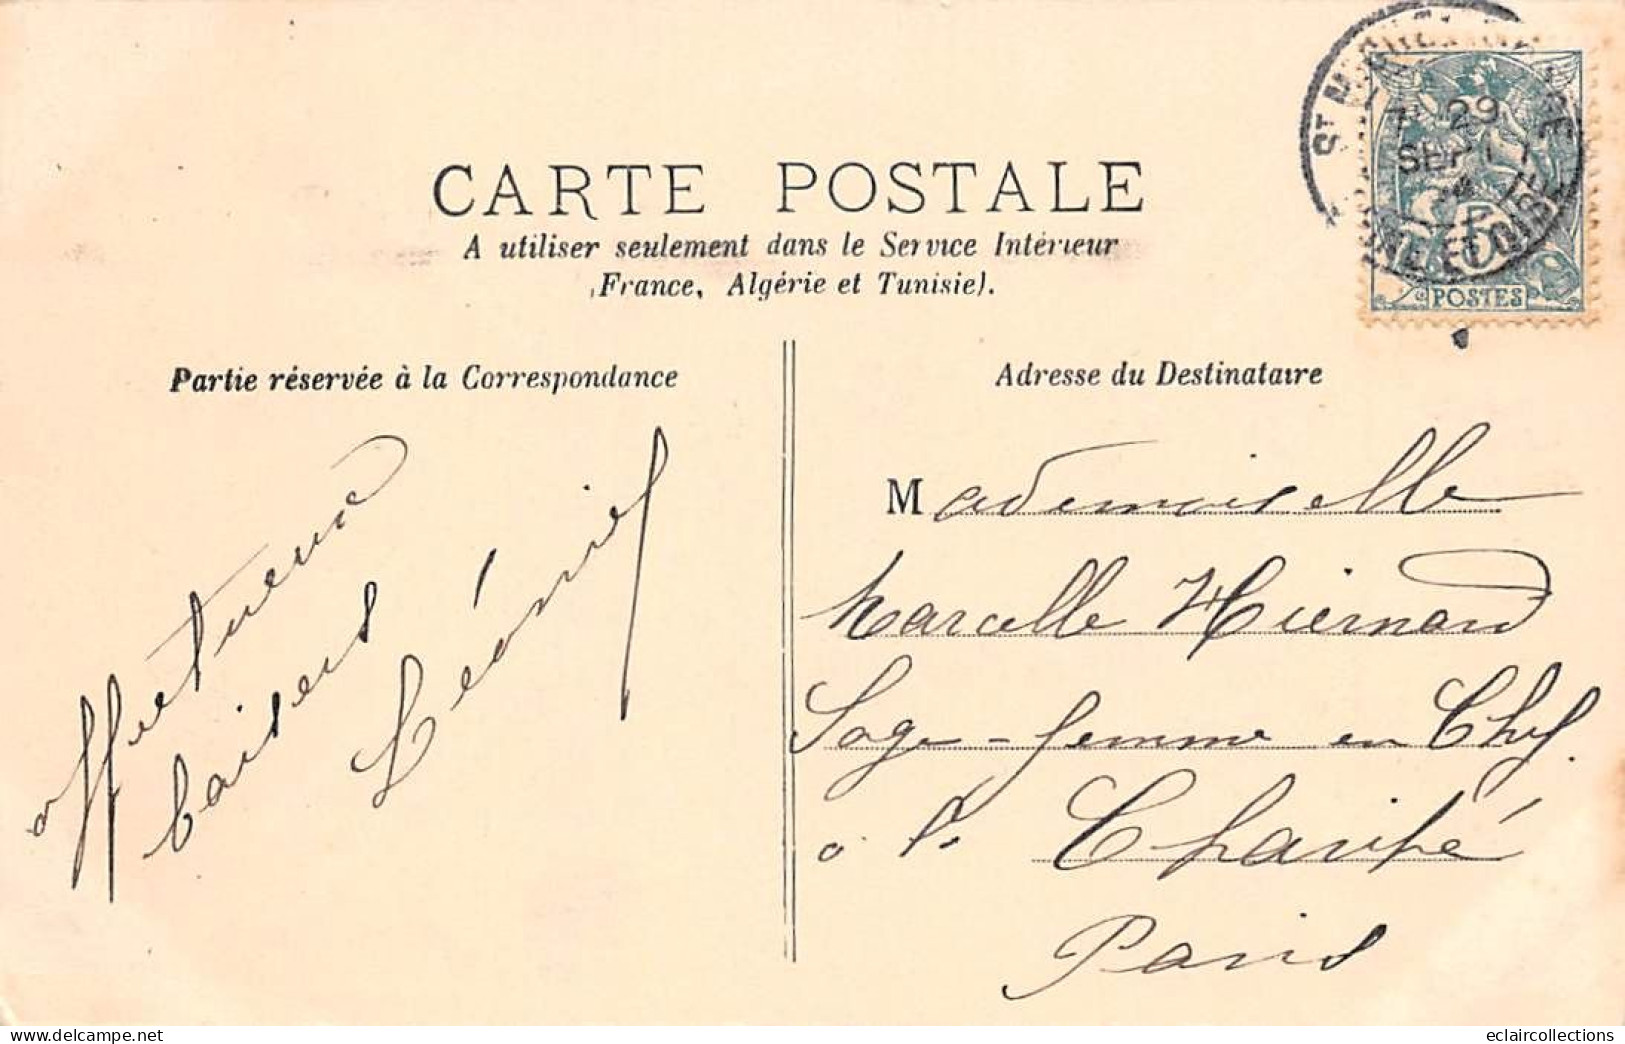 CARTE POSTALE
A utiliser seulement dans le Service Intérieur
(France, Algérie et Tunisie).
Partie réservée à la Correspondance
Adresse du Destinataire
affectueux
baisers
Léonie
Mademoiselle
Marcelle Hiernard
Sage-femme en Chef
à la Charité
Paris
29
SEPT
ET OISE
5
POSTES
eclaircollections